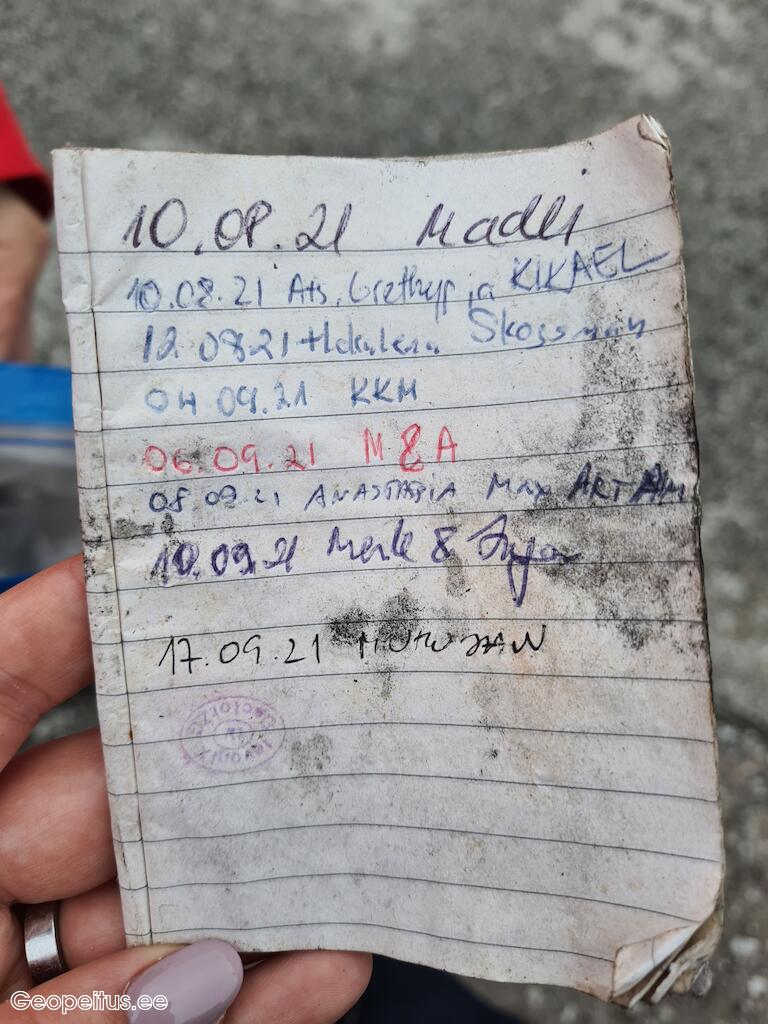 10.08.21 Madli
10.08.21 Ats, Grethyp ja KIKAEL
12.08.21 Skossman
04.09.21 KKM
06.09.21 M & A
08.09.21 ANASTASIA MAX ARTÄM
10.09.21 Merle &
17.09.21
Geopeitus.ee